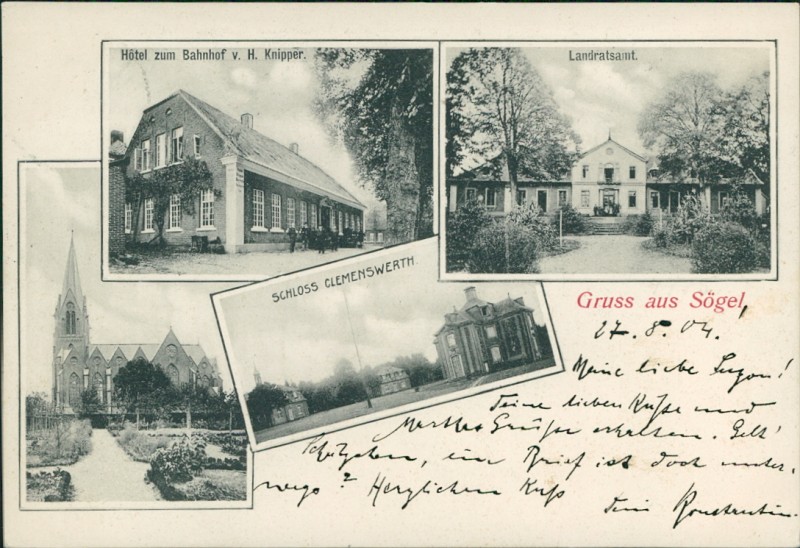 Hôtel zum Bahnhof v. H. Knipper.
Landratsamt.
SCHLOSS CLEMENSWERTH.
Gruss aus Sögel,
27.8.04.
Meine liebe
Deine lieben Küsse und
Marthas Grüße erhalten. Gelt!
Schätzchen, ein Brief ist doch unter-
wegs? Herzlichen Kuß
Dein Konstantin.